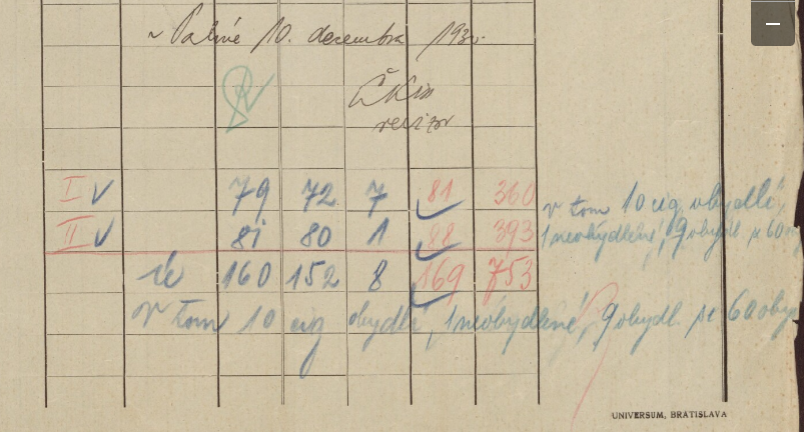 10. decembra 193
revizor
I V 79 72 7 81 360 v tom 10 cig. obydlí,
II V 81 80 1 88 393 1 neobydlené, 9 obydl. se 60
160 152 8 169 753
V tom 10 cig obydlí, 1 neobydlené, 9 obydl. se 60 oby
UNIVERSUM, BRATISLAVA